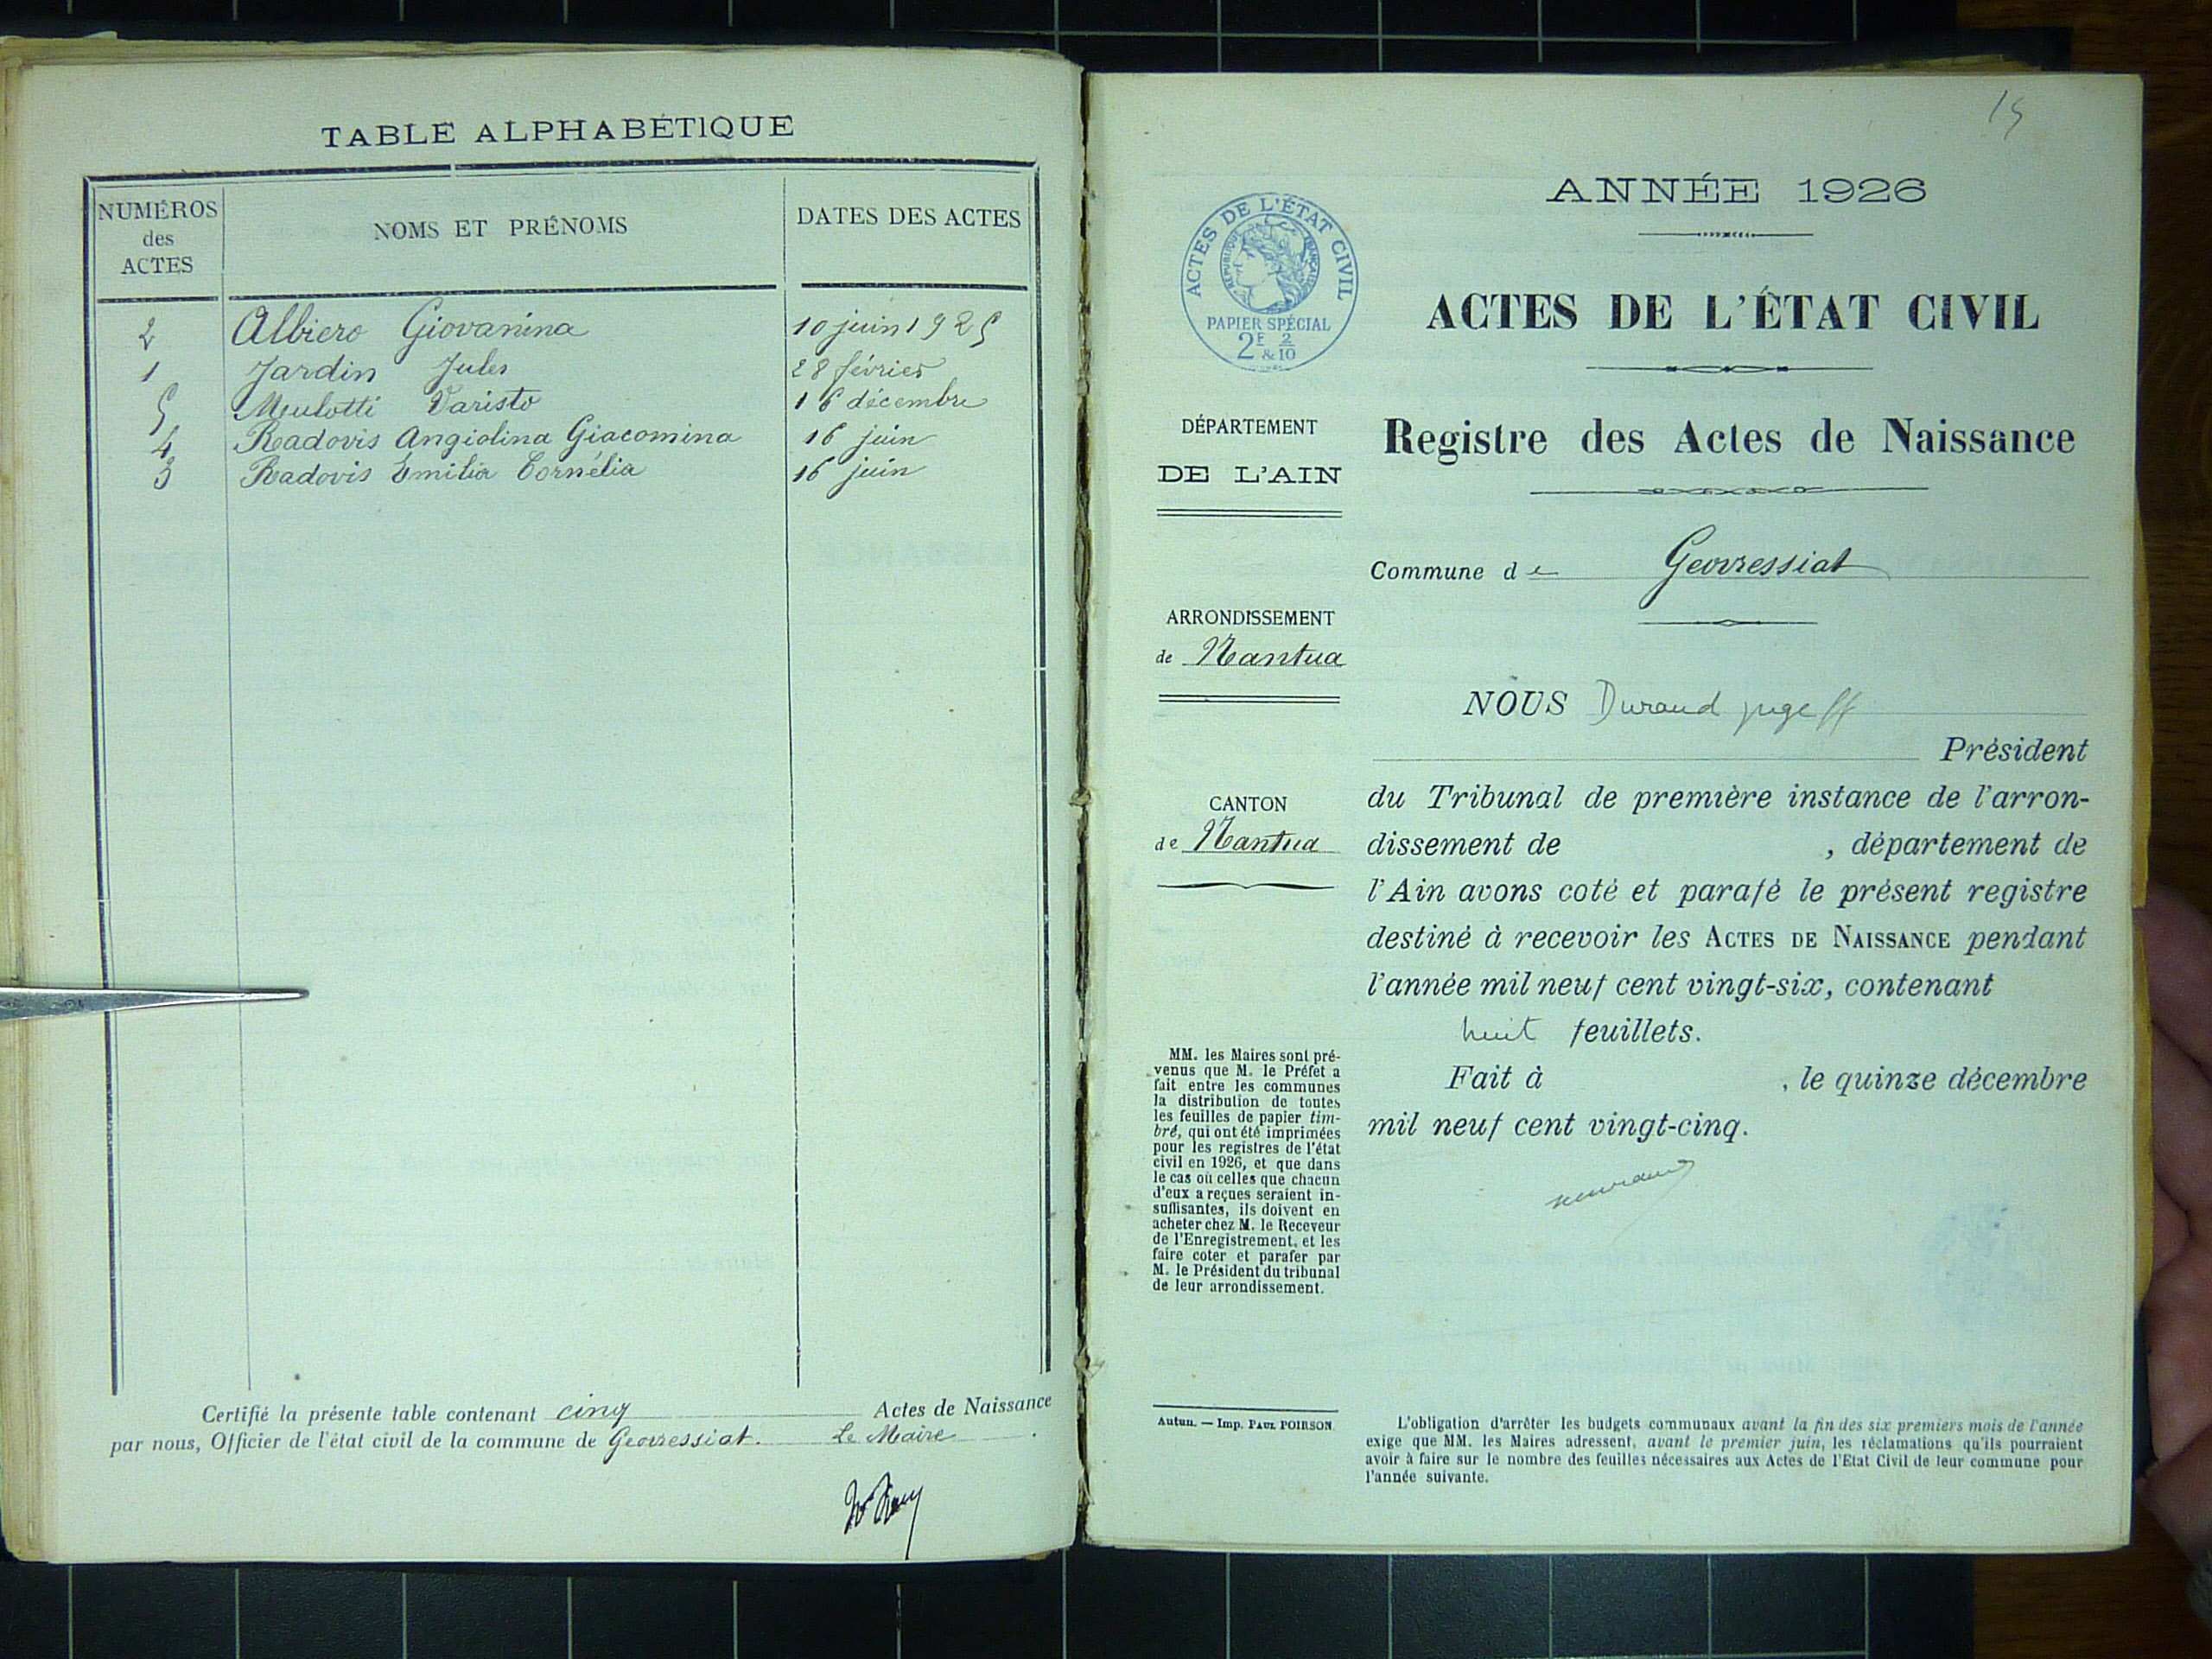 TABLE ALPHABÉTIQUE
NUMÉROS
des
ACTES
NOMS ET PRÉNOMS
DATES DES ACTES
2 Albiero Giovanina 10 juin 1925
1 Jardin Jules 28 février
5 Mulotti Varisto 16 décembre
4 Radovis Angiolina Giacomina 16 juin
3 Radovis Émilia Cornélia 16 juin
Certifié la présente table contenant cinq Actes de Naissance
par nous, Officier de l'état civil de la commune de Geovressiat. Le Maire
ANNÉE 1926
ACTES DE L'ÉTAT CIVIL
RÉPUBLIQUE FRANÇAISE
PAPIER SPÉCIAL
2F 2
& 10
ACTES DE L'ÉTAT CIVIL
DÉPARTEMENT
DE L'AIN
Registre des Actes de Naissance
Commune de Geovressiat
ARRONDISSEMENT
de Nantua
CANTON
de Nantua
NOUS Durand juge ff
Président
du Tribunal de première instance de l'arron-
dissement de , département de
l'Ain avons coté et parafé le présent registre
destiné à recevoir les ACTES DE NAISSANCE pendant
l'année mil neuf cent vingt-six, contenant
huit feuillets.
Fait à , le quinze décembre
mil neuf cent vingt-cinq.
MM. les Maires sont pré-
venus que M. le Préfet a
fait entre les communes
la distribution de toutes
les feuilles de papier tim-
bré, qui ont été imprimées
pour les registres de l'état
civil en 1926, et que dans
le cas où celles que chacun
d'eux a reçues seraient in-
suffisantes, ils doivent en
acheter chez M. le Receveur
de l'Enregistrement, et les
faire coter et parafer par
M. le Président du tribunal
de leur arrondissement.
Autun. — Imp. PAUL POIRSON
L'obligation d'arrêter les budgets communaux avant la fin des six premiers mois de l'année
exige que MM. les Maires adressent, avant le premier juin, les réclamations qu'ils pourraient
avoir à faire sur le nombre des feuilles nécessaires aux Actes de l'Etat Civil de leur commune pour
l'année suivante.